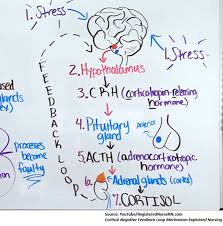 1. Stress
1. Stress
2. Hypothalamus
3. CRH (corticotropin-releasing
hormone)
4. Pituitary
gland
Anterior
5. ACTH (adrenocorticotropic
hormone)
6. Adrenal glands (cortex)
7. CORTISOL
FEEDBACK LOOP
glands
Processes
become
faulty
Source: YouTube/RegisteredNurseRN.com
Cortisol Negative Feedback Loop Mechanism Explained Nursing